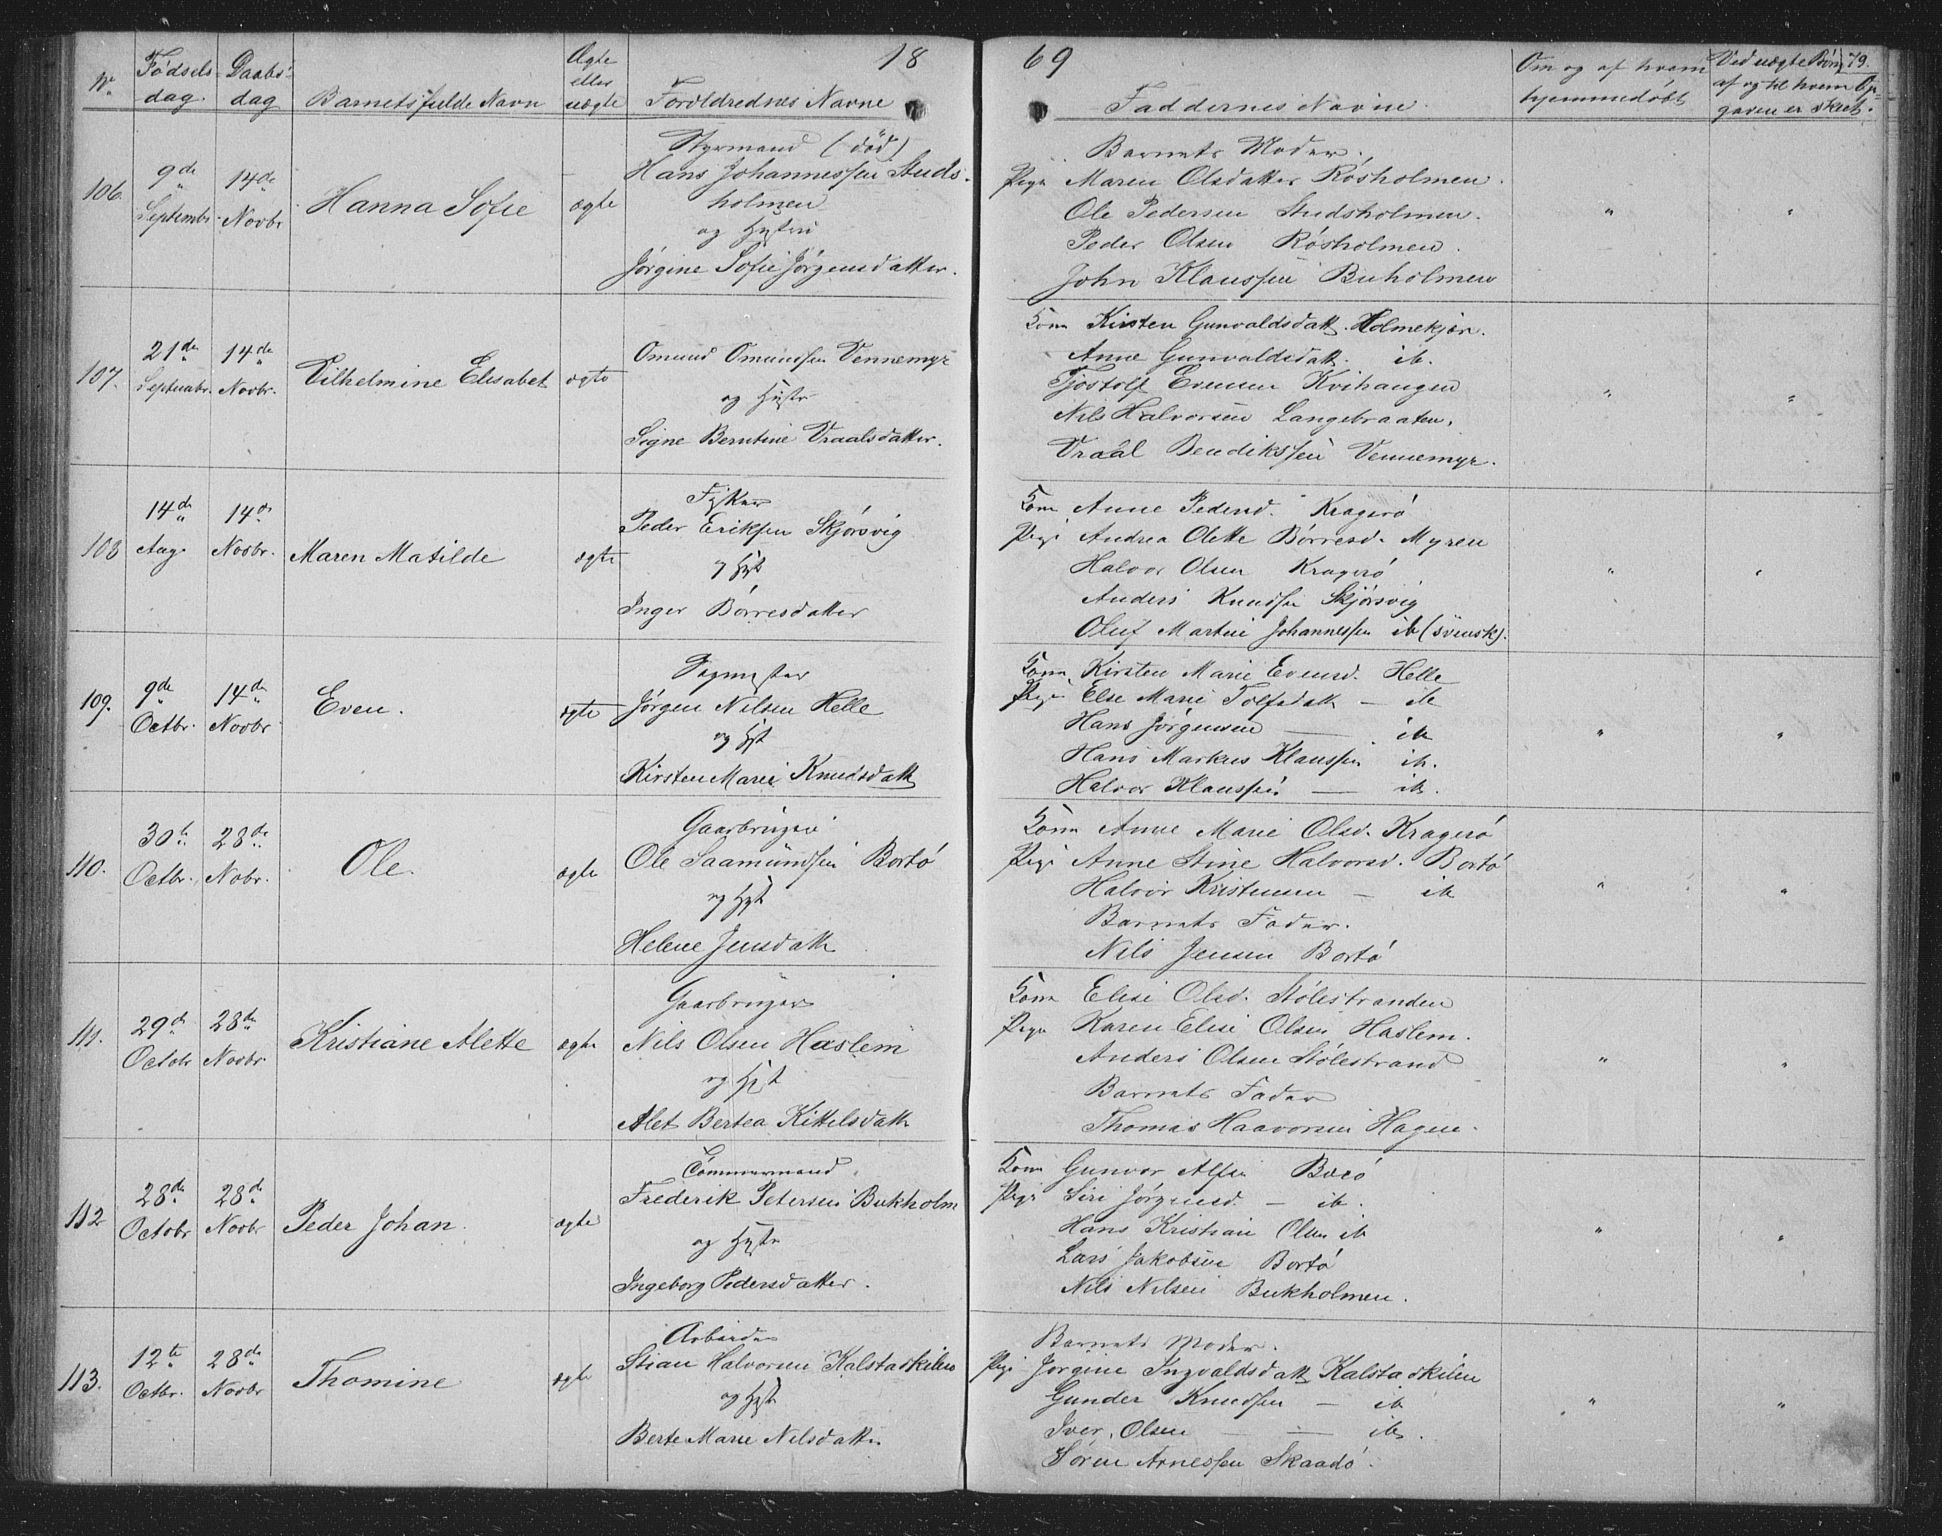 18 69
79.
No. Fødsels Daabs- Ægte
dag. dag Barnets fulde Navn eller uægte Forældrenes Navne
Faddernes Navne. Om og af hvem hjemmedøbt Ved uægte Børn af og til hvem Opgaven er skeet.
106. 9de Septembr 14de Novbr Hanna Sofie ægte
Styrmand (død)
Hans Johannessen Studs-
holmen
og Hustru
Jørgine Sofie Jørgensdatter.
Barnets Moder.
Pige Maren Olsdatter Røsholmen.
Ole Pedersen Studsholmen.
Peder Olsen Røsholmen.
John Klaussen Buholmen
107. 21de Septembr. 14de Novbr. Vilhelmine Elisabet ægte
Omund Omundsen Vennemyr
og Hustr
Signe Berntine Vraalsdatter.
Kone Kirsten Gunvaldsdatt. Holmekjær.
Anne Gunvaldsdatt. ib.
Tjostolf Evensen Kvihaugen
Nils Halvorsen Langebraaten.
Vraal Bendikssen Vennemyr.
108 14de Aug. 14de Novbr. Maren Matilde ægte
Fisker
Peder Eriksen Skjørsvig
og Hst
Inger Børresdatter
Kone Anne Pedersd. Kragerø
Pige Andrea Olette Børresd. Myren
Halvor Olsen Kragerø
Anders Knudsen Skjørsvig
Oluf Martin Johannessen ib (svensk).
109. 9de Octbr. 14de Novbr Even. ægte
Jørgen Nilsen Helle
og Hst
Kirsten Marie Knudsdatt
Kone Kirsten Marie Evensd. Helle
Pige Else Marie Tolfsdatt — ib
Hans Jørgensen — ib
Hans Markus Klaussen ib.
Halvor Klaussen — ib.
110. 30te Octbr. 28de Nobr. Ole. ægte
Gaarbruger
Ole Saamundsen Bortø
og Hst
Helene Jensdatt
Kone Anne Marie Olsd. Kragerø
Pige Anne Stine Halvorsd. Bortø
Halvor Kristensen — ib
Barnets Fader.
Nils Jensen Bortø
111. 29de Octobr 28de Novbr. Kristiane Alette ægte
Gaarbruger
Nils Olsen Haslem
og Hst
Alet Bertea Kittelsdatt
Kone Elise Olsd. Stølestranden
Pige Karen Elise Olsen Haslem.
Anders Olsen Stølestrand
Barnets Fader
Thomas Haavorsen Hagen.
112 28de Octobr 28de Novbr Peder Johan. ægte
Tømmermand
Frederik Petersen Bukholm
og Hstr
Ingeborg Pedersdatter.
Kone Gunvor Alfsen Bærø
Pige Siri Jørgensd. — ib.
Hans Kristian Olsen ib
Lars Jakobsen Bortø
Nils Nilsen Bukholmen.
113. 12te Octbr. 28de Novbr Thomine ægte
Arbeider
Stian Halvorsen Kalstadkilen
og Hst
Berte Marie Nilsdatter
Barnets Moder.
Pige Jørgine Ingvaldsdatt Kalstadkilen
Gunder Knudsen — ib
Iver Olsen — ib.
Søren Arnessen Skaadø.